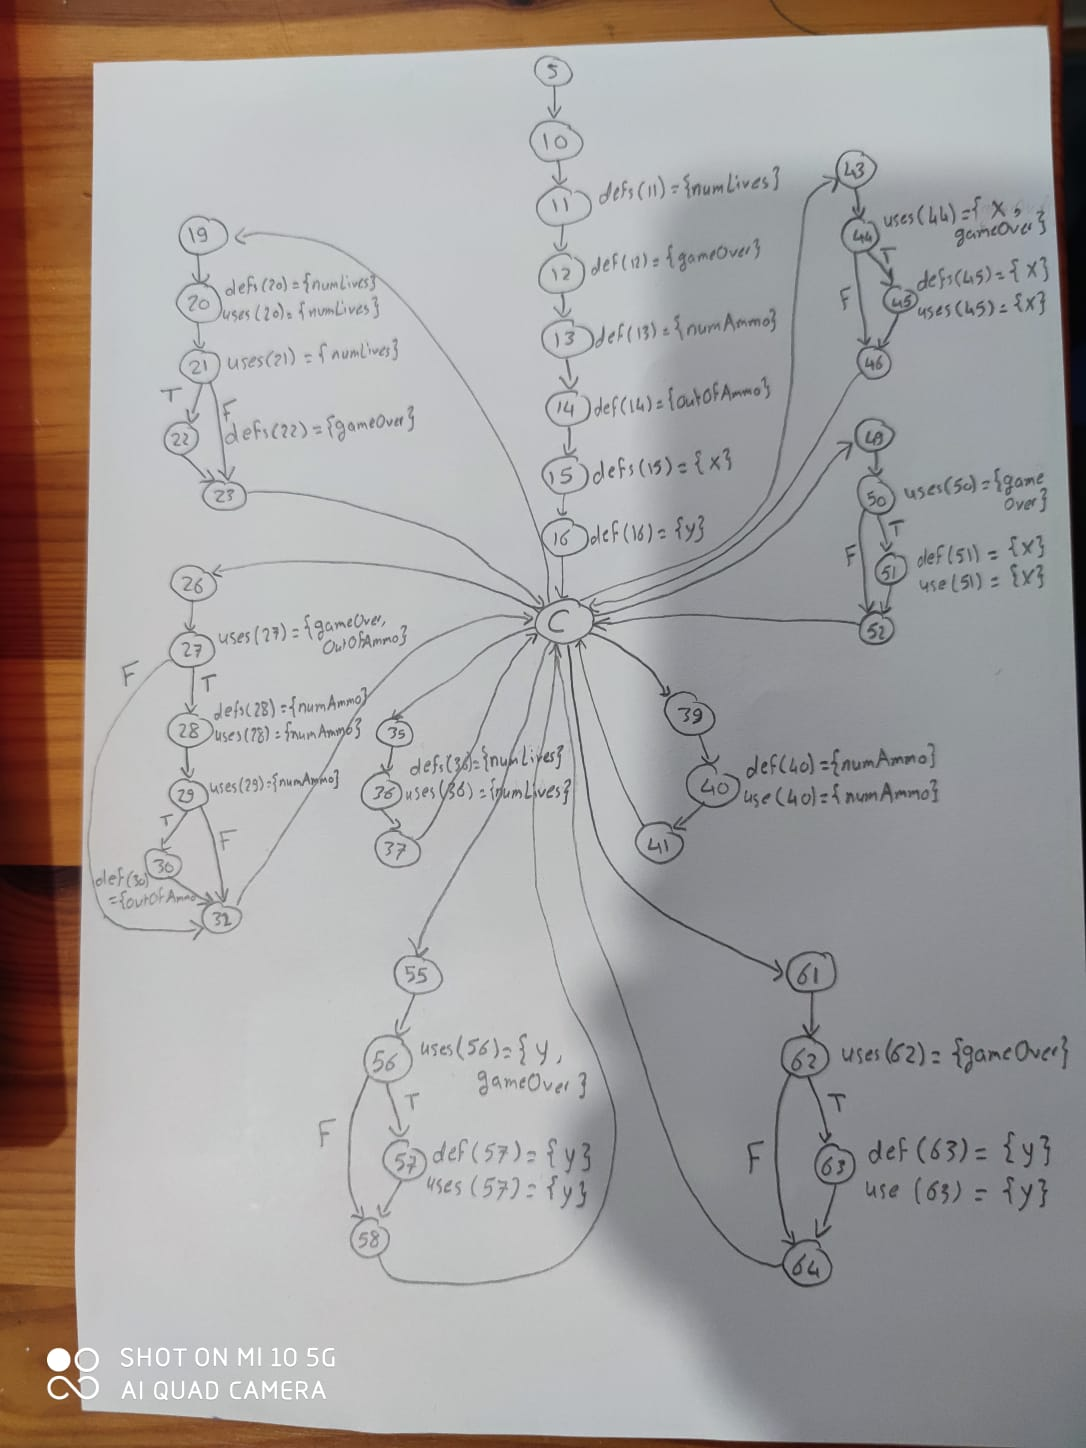 5
10
11
defs(11)={numLives}
12
def(12)={gameOver}
13
def(13)={numAmmo}
14
def(14)={outOfAmmo}
15
defs(15)={x}
16
def(16)={y}
C
19
20
defs(20)={numLives}
uses(20)={numLives}
21
uses(21)={numLives}
T
F
22
defs(22)={gameOver}
23
26
27
uses(27)={gameOver,
OutOfAmmo}
F
T
28
defs(28)={numAmmo}
uses(28)={numAmmo}
29
uses(29)={numAmmo}
T
F
30
def(30)
={outOfAmmo
32
35
36
defs(36)={numLives}
uses(36)={numLives}
37
39
40
def(40)={numAmmo}
use(40)={numAmmo}
41
43
44
uses(44)={x,
gameOver}
T
F
45
defs(45)={x}
uses(45)={x}
46
49
50
uses(50)={game
Over}
T
F
51
def(51)={x}
use(51)={x}
52
55
56
uses(56)={y,
gameOver}
T
F
57
def(57)={y}
uses(57)={y}
58
61
62
uses(62)={gameOver}
T
F
63
def(63)={y}
use(63)={y}
64
SHOT ON MI 10 5G
AI QUAD CAMERA